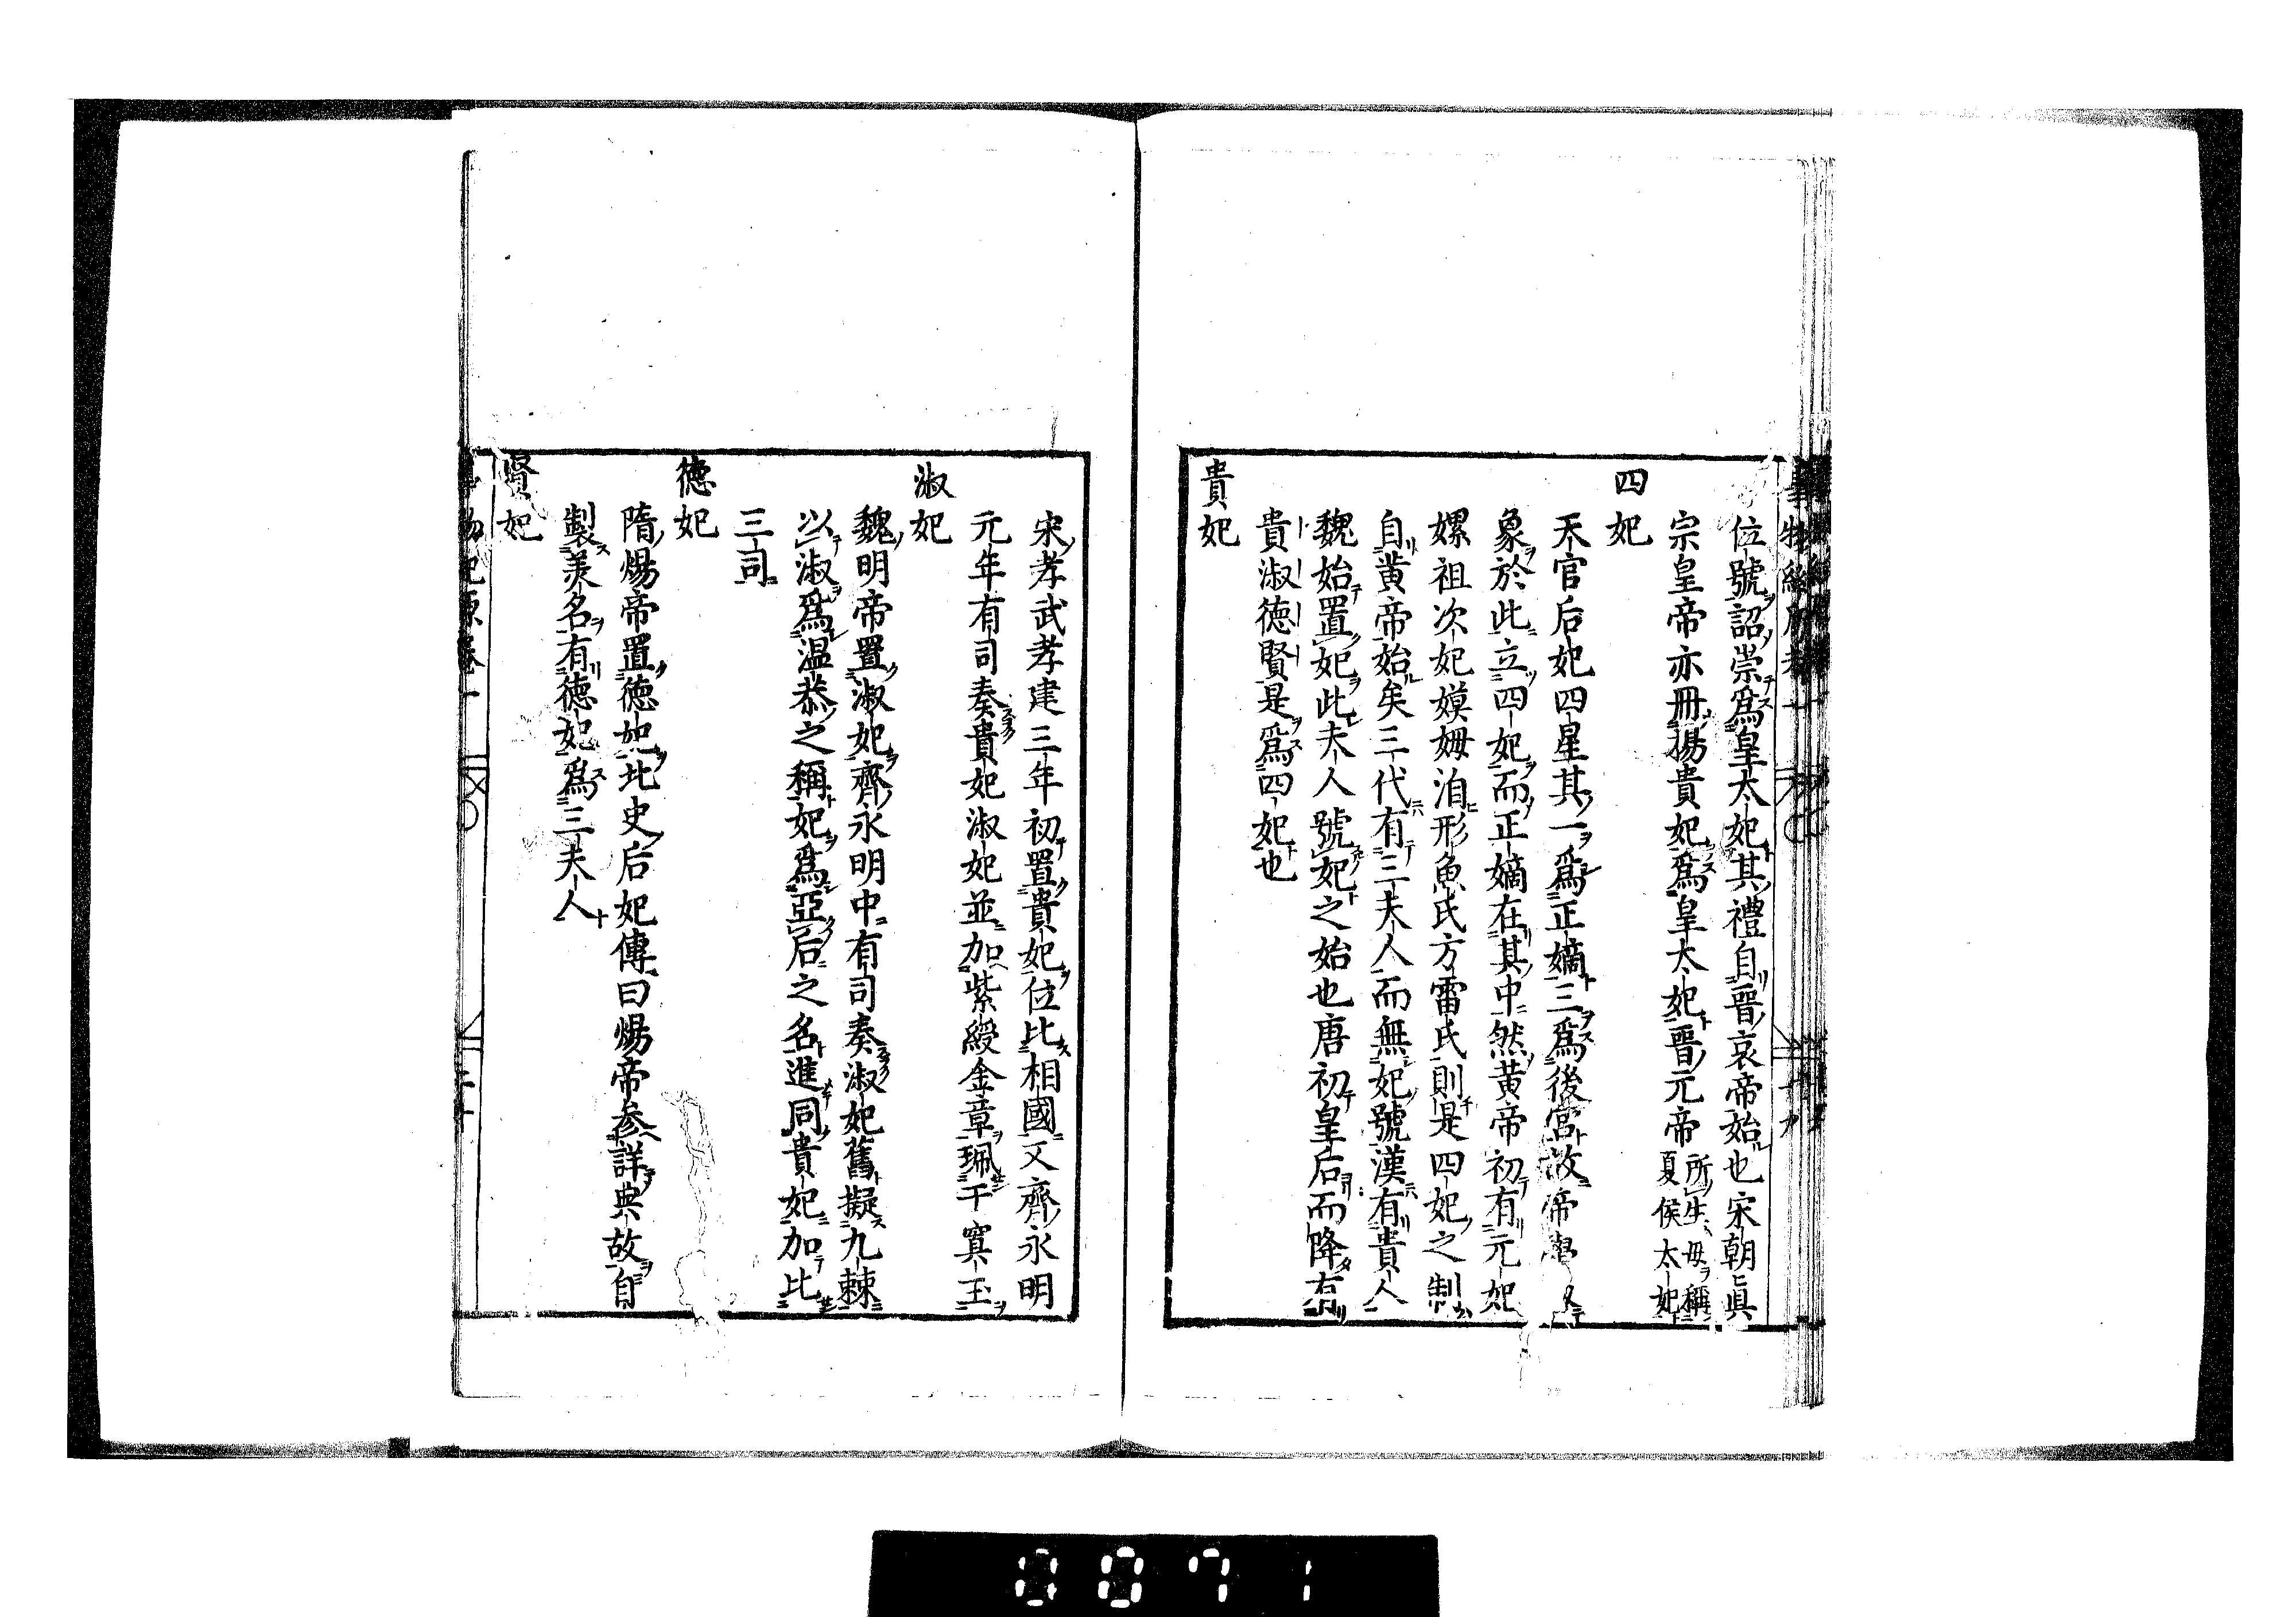 位號詔崇爲皇太妃其禮自晉哀帝始也宋朝眞
宗皇帝亦冊楊貴妃爲皇太妃晉元帝所生母稱夏侯太妃
四妃
天官后妃四星其一爲正嫡三爲後宮故帝
象於此立四妃而正嫡在其中然黄帝初有元妃
嫘祖次妃嫫姆洎彤魚氏方雷氏則是四妃之制
自黄帝始矣三代有三夫人而無妃號漢有貴人
魏始置妃此夫人號妃之始也唐初皇后而降有
貴淑德賢是爲四妃也
貴妃
宋孝武孝建三年初置貴妃位比相國文齊永明
元年有司奏貴妃淑妃並加紫綬金章珮于寘玉
淑妃
魏明帝置淑妃齊永明中有司奏淑妃舊擬九棘
以淑爲温恭之稱妃爲亞后之名進同貴妃加比
三司
德妃
隋煬帝置德妃北史后妃傳曰煬帝参詳典故自
製美名有德妃爲三夫人
賢妃